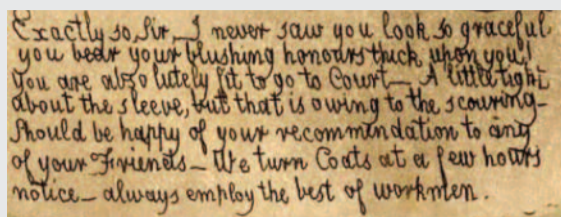 Exactly so, Sir, I never saw you look so graceful.
you bear your blushing honours thick upon you!
you are absolutely fit to go to Court— A little tight
about the sleeve, but that is owing to the scouring—
Should be happy of your recommendation to any
of your Friends— We turn Coats at a few hours
notice— always employ the best of workmen.